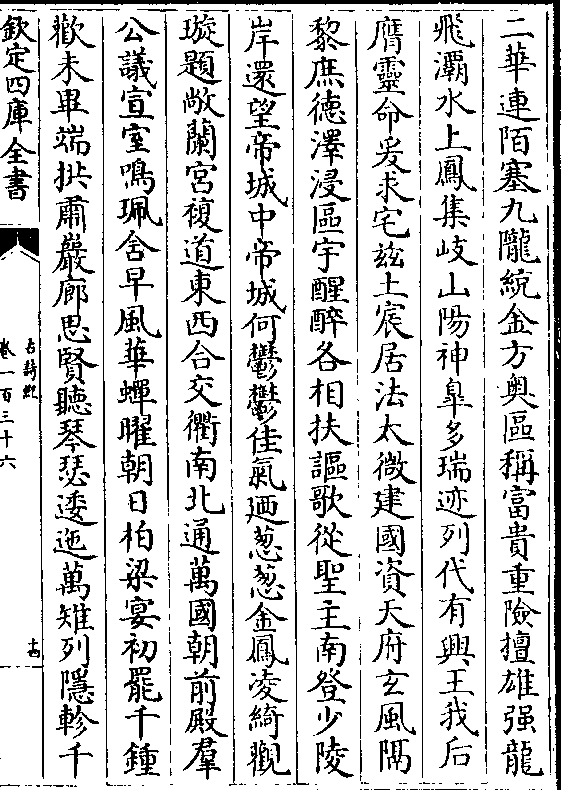 二華連陌塞九隴統金方奥區稱富貴重險擅雄强龍
飛灞水上鳳集岐山陽神臯多瑞迹列代有興王我后
膺靈命爰求宅兹土宸居法太微建國資天府玄風隅
黎庶德澤浸區宇醒醉各相扶謳歌從聖主南登少陵
岸還望帝城中帝城何鬱鬱佳氣廼葱葱金鳳凌綺觀
璇題敞蘭宮複道東西合交衢南北通萬國朝前殿羣
公議宣室鳴珮含早風華蟬曜朝日柏梁宴初罷千鍾
歡未畢端拱肅巖廊思賢聽琴瑟逶迤萬雉列隱軫千
欽定四庫全書
古詩紀
卷一百三十六
十四